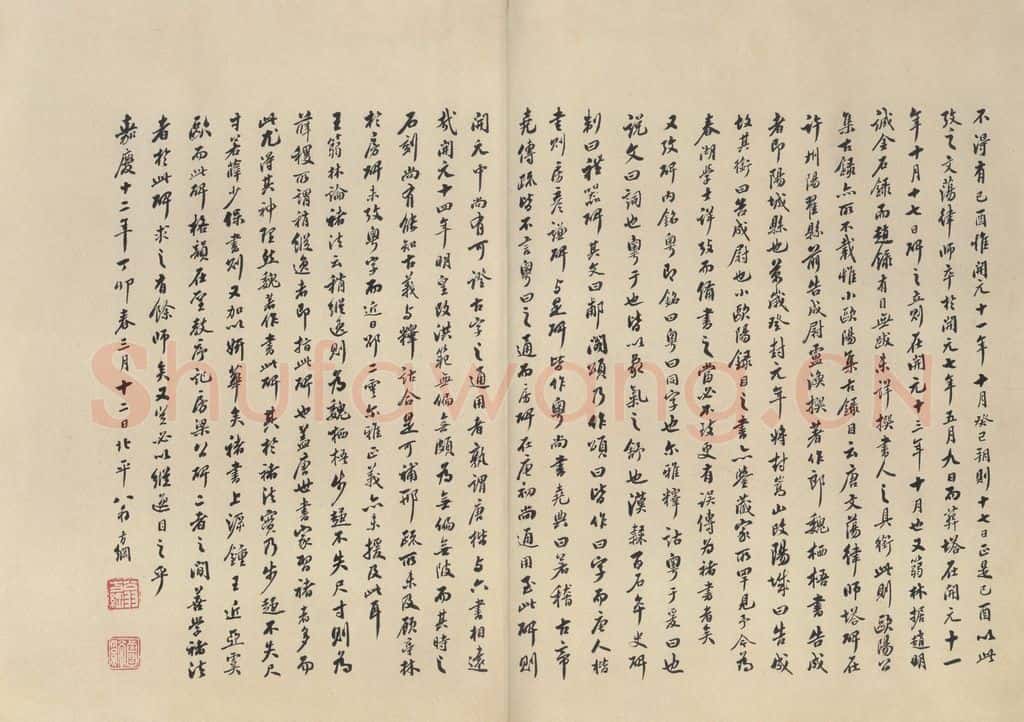 不得有己酉惟開元十一年十月癸巳朔則十七日正是己酉以此
攷之文蕩律師卒於開元七年五月九日而葬塔在開元十一
年十月十七日碑之立則在開元十三年十月也又翁林據趙明
誠金石錄而趙錄有目無跋未詳撰書人之具銜此則歐陽公
集古錄亦所不載惟小歐陽集古錄目云唐文蕩律師塔碑在
許州陽翟縣前告成尉盧渙撰著作郎魏栖梧書告成
者即陽城縣也萬歲登封元年將封嵩山改陽城曰告成
故其銜曰告成尉也小歐陽錄目之書亦鑒藏家所罕見予今為
春湖學士詳攷而備書之當必不致更有誤傳為褚書者矣
又攷碑內銘粵即銘曰粵曰同字也尔雅釋詁粵于爰曰也
說文曰詞也粵于也皆以象氣之舒也漢隸百石卒史碑
制曰禮器碑其文曰鄐閣頌乃作頌曰皆作曰字而唐人楷
書則房彥謙碑与是碑皆作粵尚書堯典曰若稽古帝
堯傳疏皆不言粵曰之通而房碑在唐初尚通用至此碑則
開元中尚有可證古字之通用者孰謂唐楷与六書相遠
哉開元十四年明皇改洪範無偏無頗為無偏無陂而其時之
石刻尚有能知古義与釋詁合是可補邢疏所未及顧亭林
於房碑未攷粵字而近日邵二雲尔雅正義亦未援及此耳
王翁林論褚法云稍縱逸則為魏栖梧步趨不失尺寸則為
薛稷所謂稍縱逸者即指此碑也蓋唐世書家習褚者多而
此尤得其神理然魏著作書此碑其於褚法實乃步趨不失尺
寸若薛少保書則又加以妍華矣褚書上源鍾王近亞虞
歐而此碑格韻在聖教序記房梁公碑二者之間善學褚法
者於此碑求之有餘師矣又豈必以縱逸目之乎
嘉慶十二年丁卯春三月十二日北平翁方綱
Shufawang.CN